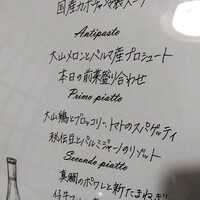 国産カボチャの冷製スープ
Antipasto
大山メロンとパルマ産プロシュート
本日の前菜盛り合わせ
Primo piatto
大山鶏とブロッコリー、トマトのスパゲッティ
秘伝豆とパルミジャーノのリゾット
Secondo piatto
真鯛のポワレと新たまねぎ
仔牛